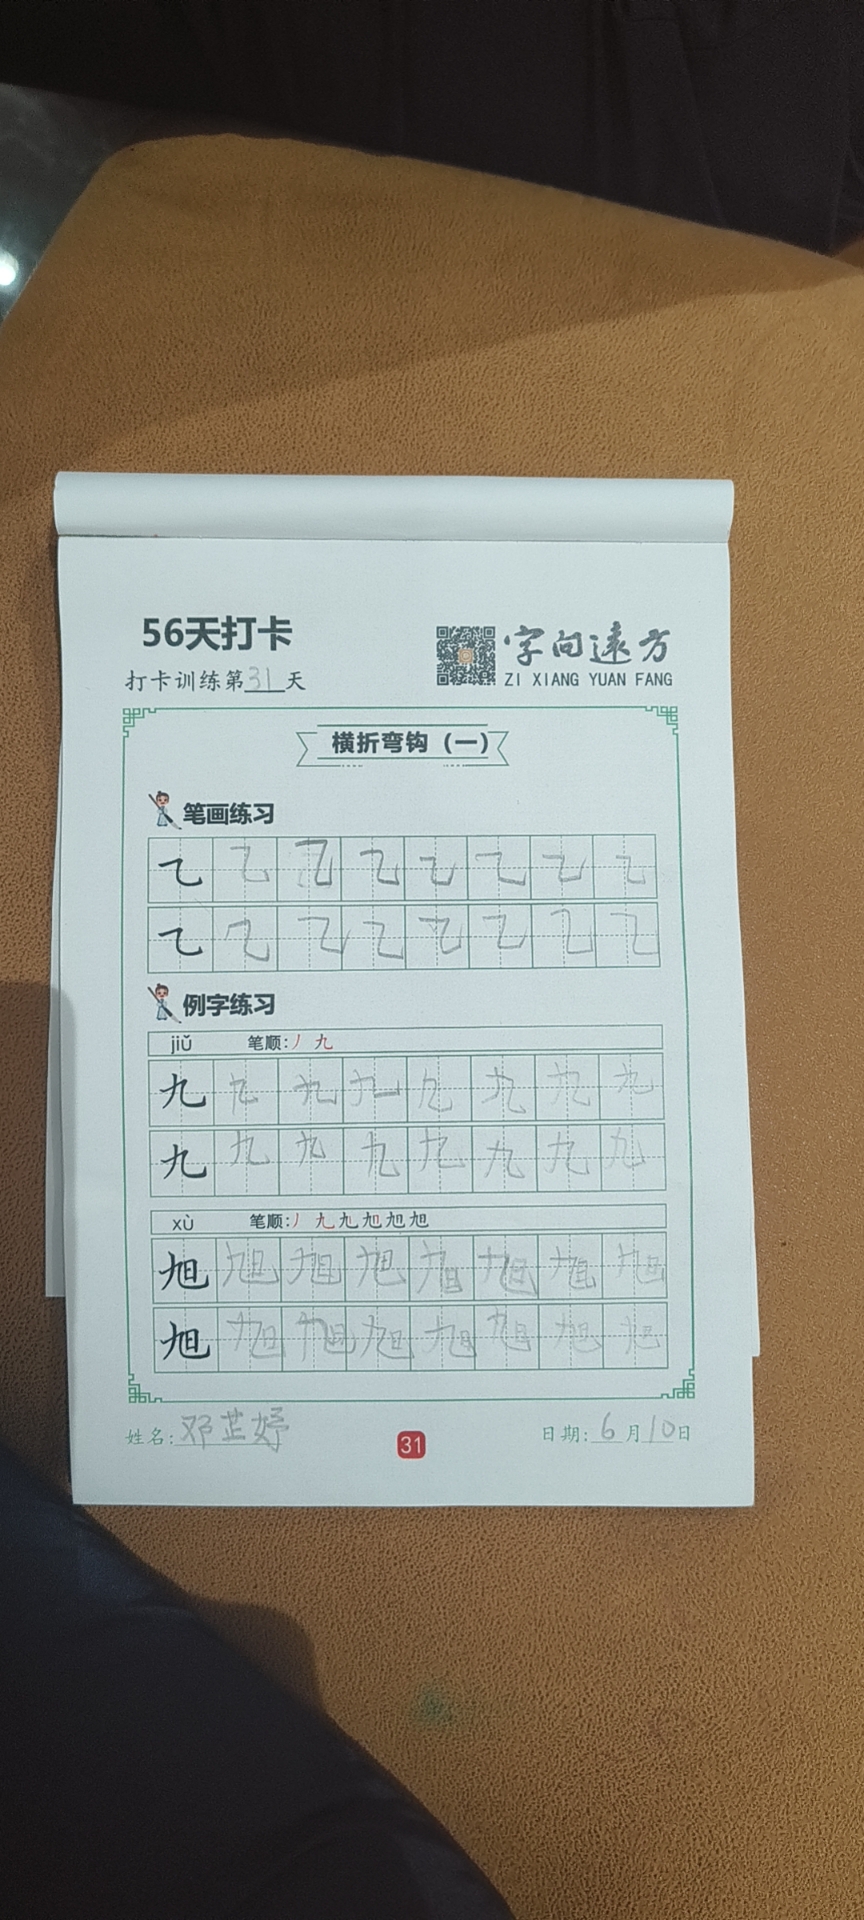 56天打卡
字向遠方
打卡训练第31天
ZI XIANG YUAN FANG
横折弯钩（一）
笔画练习
乙 乙 乙 乙 乙 乙 乙 乙
乙 乙 乙 乙 乙 乙 乙 乙
例字练习
jiǔ 笔顺:丿 九
九 九 九 九 九 九 九 九
九 九 九 九 九 九 九 九
xù 笔顺:丿 九 九 旭 旭 旭
旭 旭 旭 旭 旭 旭 旭 旭
旭 旭 旭 旭 旭 旭 旭 旭
姓名:邓芷妤
31
日期:6月10日